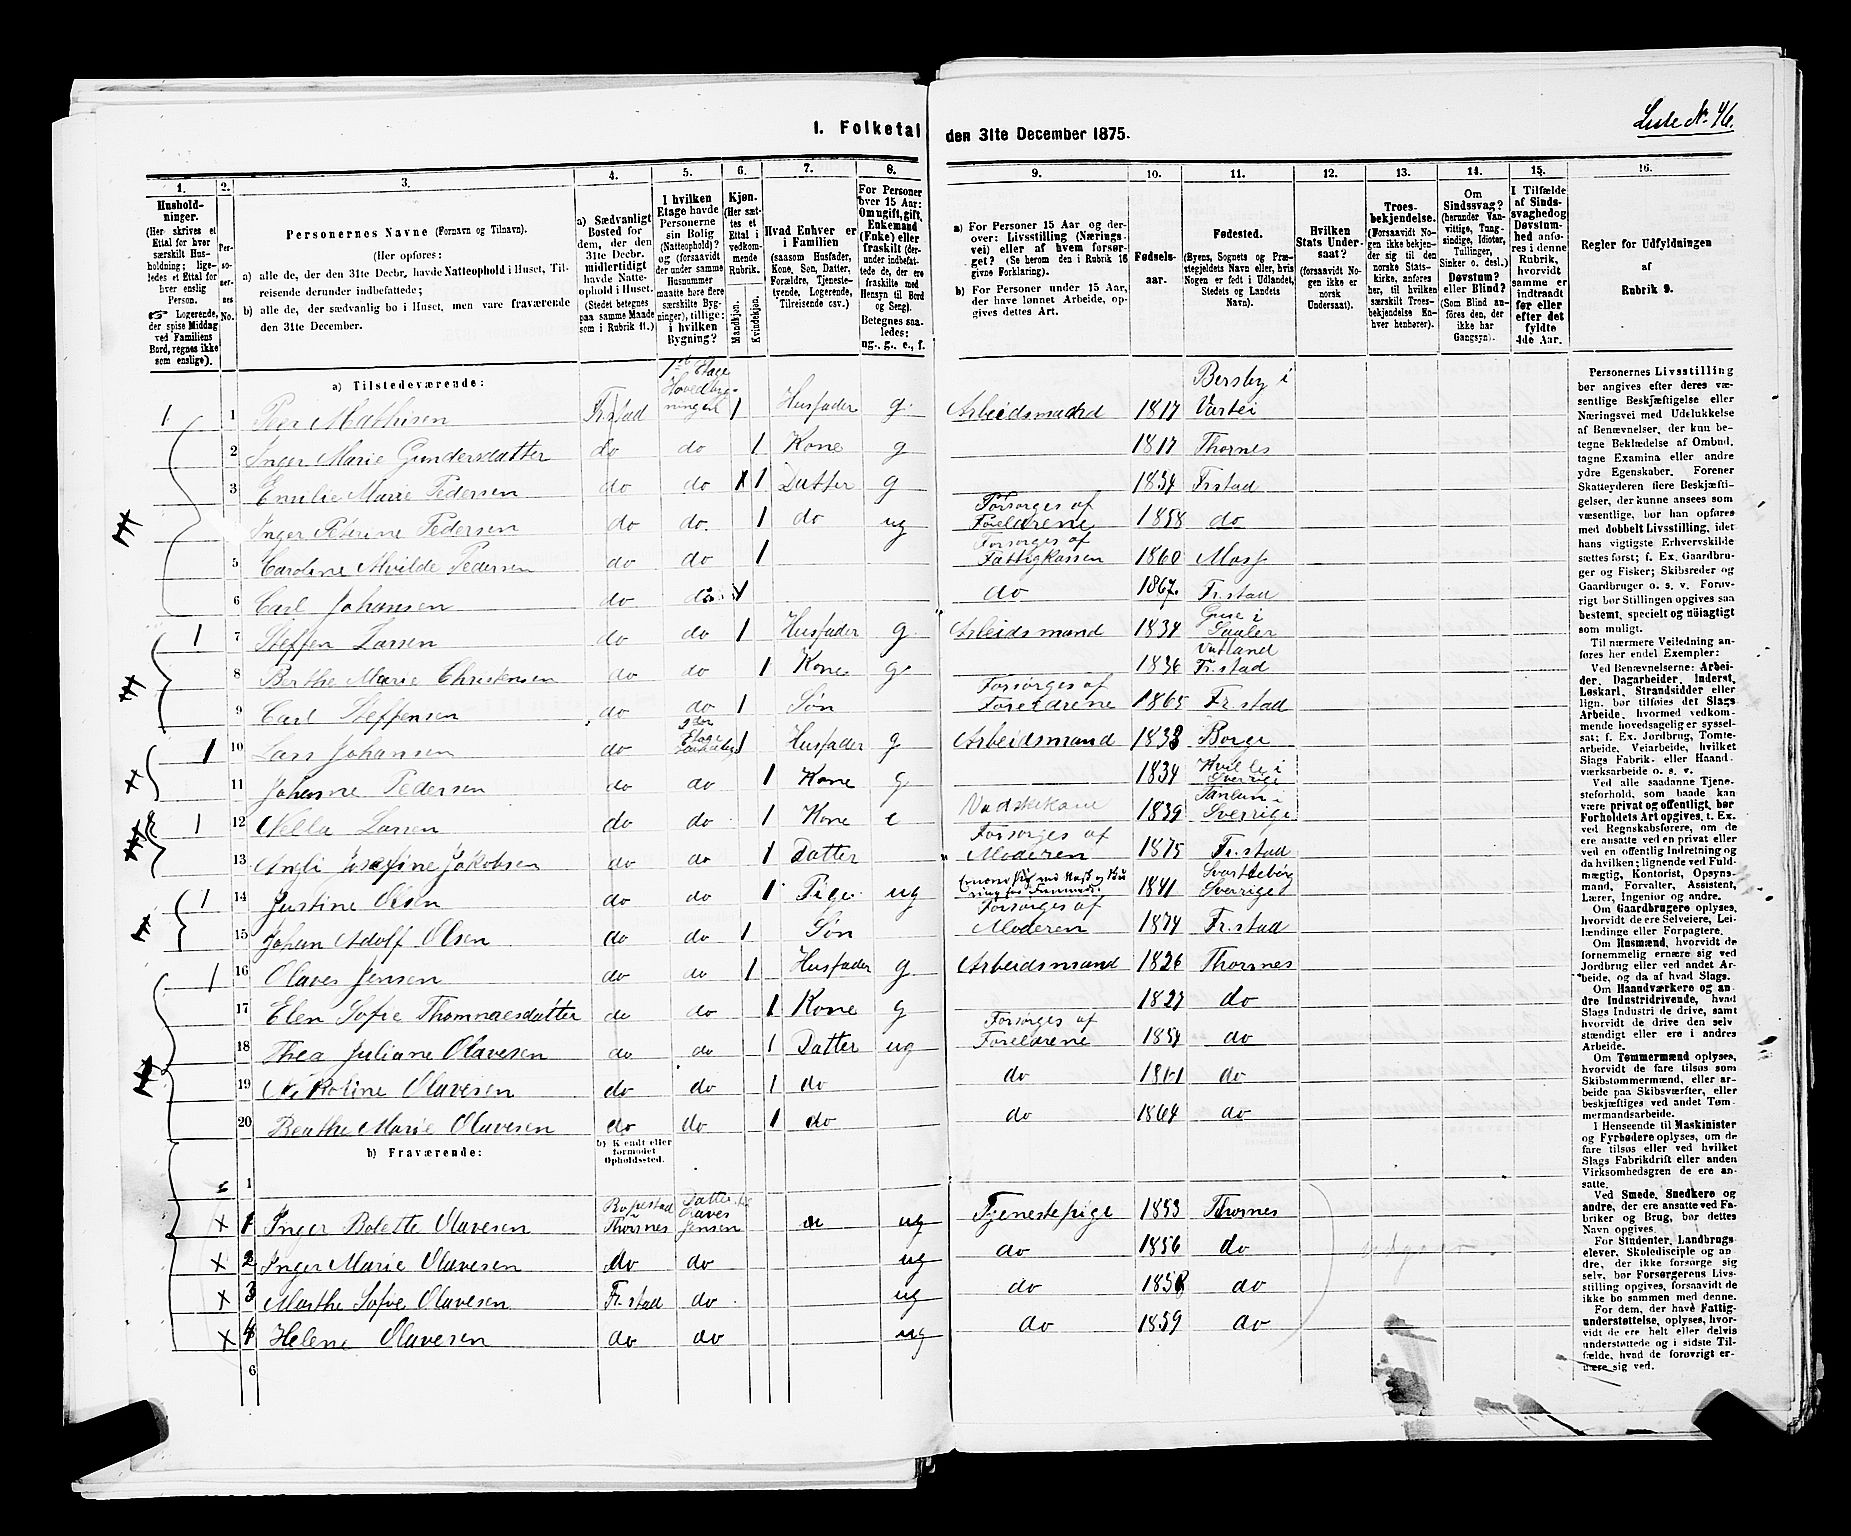 I. Folketal den 31te December 1875.
Liste N. 46.
1. 2. 3. 4. 5. 6. 7. 8. 9. 10. 11. 12. 13. 14. 15. 16.
Hushold-
ninger.
(Her skrives et
Ettal for hver
særskilt Hus-
holdning; lige-
ledes et Ettal for
hver enslig
Person.
☞ Logerende,
der spise Middag
ved Familiens
Bord, regnes ikke
som enslige).
Per-
so-
ner-
nes
No.
Personernes Navne (Fornavn og Tilnavn).
(Her opføres:
a) alle de, der den 31te Decbr. havde Natteophold i Huset, Til-
reisende derunder indbefattede;
b) alle de, der sædvanlig bo i Huset, men vare fraværende
den 31te December.
a) Sædvanligt
Bosted for
dem, der den
31te Decbr.
midlertidigt
havde Natte-
ophold i Huset.
(Stedet betegnes
paa samme Maade
som i Rubrik 11.)
I hvilken
Etage havde
Personerne
sin Bolig
(Natteophold)?
og (forsaavidt
der under samme
Husnummer
maatte høre flere
særskilte Byg-
ninger), tillige:
i hvilken
Bygning?
Kjøn.
(Her sæt-
tes et
Ettal i
vedkom-
mende
Rubrik.
Mandkjøn.
Kvindekjøn.
Hvad Enhver er
i Familien
(saasom Husfader,
Kone, Søn, Datter,
Forældre, Tjeneste-
tyende, Logerende,
Tilreisende osv.)
For Personer
over 15 Aar:
Om ugift, gift,
Enkemand
(Enke) eller
fraskilt (der-
under indbefat-
tede de, der ere
fraskilte med
Hensyn til Bord
og Seng).
Betegnes saa-
ledes:
ug., g., e., f.
a) For Personer 15 Aar og der-
over: Livsstilling (Nærings-
vei) eller af hvem forsør-
get? (Se herom den i Rubrik 16
givne Forklaring).
b) For Personer under 15 Aar,
der have lønnet Arbeide, op-
gives dettes Art.
Fødsels-
aar.
Fødested.
(Byens, Sognets og Præ-
stegjeldets Navn eller, hvis
Nogen er født i Udlandet,
Stedets og Landets
Navn).
Hvilken
Stats Under-
saat?
(forsaavidt No-
gen ikke er
norsk
Undersaat).
Troes-
bekjendelse.
(Forsaavidt No-
gen ikke bekjen-
der sig til den
norske Stats-
kirke, anføres
her, til hvilken
særskilt Troes-
bekjendelse En-
hver henhører).
Om
Sindssvag?
(herunder Van-
vittige, Tung-
sindige, Idioter,
Tullinger,
Sinker o. desl.)
Døvstum?
eller Blind?
(Som Blind an-
føres den, der
ikke har
Gangsyn).
I Tilfælde
af Sinds-
svaghed og
Døvstum-
hed anfø-
res i denne
Rubrik,
hvorvidt
samme er
indtraadt
før eller
efter det
fyldte
4de Aar.
Regler for Udfyldningen
af
Rubrik 9.
a) Tilstedeværende:
1 1 Peer Mathisen Fr.stad 1ste Etage Hovedbygningen 1 Husfader g. Arbeidsmand 1817 Bersby i
2 Inger Marie Gundersdatter do do 1 Kone g 1817 Thornes
3 Emilie Marie Pedersen do do 1 Datter g 1834 Fr.stad
Inger Peterine Pedersen do do. 1 do ug Forsørges af Foreldrene 1858 do
5 Caroline Alvilde Pedersen do do 1 Forsørges af Fattigkassen 1860 Moss
6 Carl Johansen do do 1 do 1867. Fr.stad
1 7 Steffen Larsen do do 1 Husfader g. Arbeidsmand 1834
8 Berthe Marie Christensen do do 1 Kone g. 1836 Fr.stad
9 Carl Steffensen do do 1 Søn Forsørges af Foreldrene 1865 Fr.stad
1 10 Lars Johansen do Etage 1 Husfader g Arbeidsmand 1833 Borge
11 Johanne Pedersen do do 1 Kone g 1834 Sverrige
1 12 Nella Larsen do do. 1 Kone e Vadskekone 1839 Sverrige
13 Josefine Jakobsen do do. 1 Datter Forsørges af Moderen 1875 Fr.stad
1 14 Justine Olsen do do 1 Pige. ug 1841 Sverrige
15 Johan Adolf Olsen do do 1 Søn Forsørges af Moderen 1874 Fr.stad
1 16 Olaves Jensen do do 1 Husfader g. Arbeidsmand 1826 Thornes
17 Elen Sofie Thommesdatter do do 1 Kone g 1827 do
18 Thea Juliane Olavesen do do 1 Datter ug Forsørges af Foreldrene 1854 do
19 Nikoline Olavesen do do 1 do do 1861 do
20 Berthe Marie Olavesen do do 1 do do 1864 do
b) Fraværende:
b) Kjendt eller
formodet
Opholdssted.
1
x 1 Inger Bolette Olavesen Thornes Datter Olaves Jensen ug Tjenestepige 1853 Thornes
x 2 Inger Marie Olavesen do do ug do 1856 do
x 3 Marthe Sofie Olavesen Fr.stad do ug do 1858 do
x 4 Helene Olavesen do do ug do 1859 do
6
Personernes Livsstilling
bør angives efter deres væ-
sentlige Beskjæftigelse eller
Næringsvei med Udelukkelse
af Benævnelser, der kun be-
tegne Beklædelse af Ombud,
tagne Examina eller andre
ydre Egenskaber. Forener
Skatteyderen flere Beskjæfti-
gelser, der kunne ansees som
væsentlige, bør han opføres
med dobbelt Livsstilling, idet
hans vigtigste Erhvervskilde
sættes først; f. Ex. Gaardbru-
ger og Fisker; Skibsreder og
Gaardbruger o. s. v. Forøv-
rigt bør Stillingen opgives saa
bestemt, specielt og nöiagtigt
som muligt.
Til nærmere Veiledning an-
føres her endel Exempler:
Ved Benævnelserne: Arbei-
der, Dagarbeider, Inderst,
Løskarl, Strandsidder eller
lign. bør tilføies det Slags
Arbeide, hvormed vedkom-
mende hovedsagelig er syssel-
sat; f. Ex. Jordbrug, Tomte-
arbeide, Veiarbeide, hvilket
Slags Fabrik- eller Haand-
værksarbeide o. s. v.
Ved alle saadanne Tjene-
steforhold, som baade kan
være privat og offentligt, bør
Forholdets Art opgives, t. Ex.
ved Regnskabsførere, om de
ere ansatte ved en privat eller
ved en offentlig Indretning og
da hvilken; lignende ved Fuld-
mægtig, Kontorist, Opsyns-
mand, Forvalter, Assistent,
Lærer, Ingeniør og andre.
Om Gaardbrugere oplyses,
hvorvidt de ere Selveiere, Lei-
lændinge eller Forpagtere.
Om Husmænd, hvorvidt de
fornemmelig ernære sig ved
Jordbrug eller ved andet Ar-
beide, og da af hvad Slags.
Om Haandværkere og an-
dre Industridrivende, hvad
Slags Industri de drive, samt
hvorvidt de drive den selv-
stændigt eller ere i andres
Arbeide.
Om Tømmermænd oplyses,
hvorvidt de fare tilsøs som
Skibstømmermænd, eller ar-
beide paa Skibsværfter, eller
beskjæftiges ved andet Tøm-
mermandsarbeide.
I Henseende til Maskinister
og Fyrbødere oplyses, om de
fare tilsøs eller ved hvilket
Slags Fabrikdrift eller anden
Virksomhedsgren de ere an-
satte.
Ved Smede, Snedkere og
andre, der ere ansatte ved Fa-
briker og Brug, bør dettes
Navn opgives.
For Studenter, Landbrugs-
elever, Skoledisciple og an-
dre, der ikke forsørge sig
selv, bør Forsørgerens Livs-
stilling opgives, forsaavidt de
ikke bo sammen med denne.
For dem, der have Fattig-
understøttelse, oplyses, hvor-
vidt de ere helt eller delvis
understøttede og i sidste Til-
fælde, hvad de forøvrigt er-
nære sig ved.